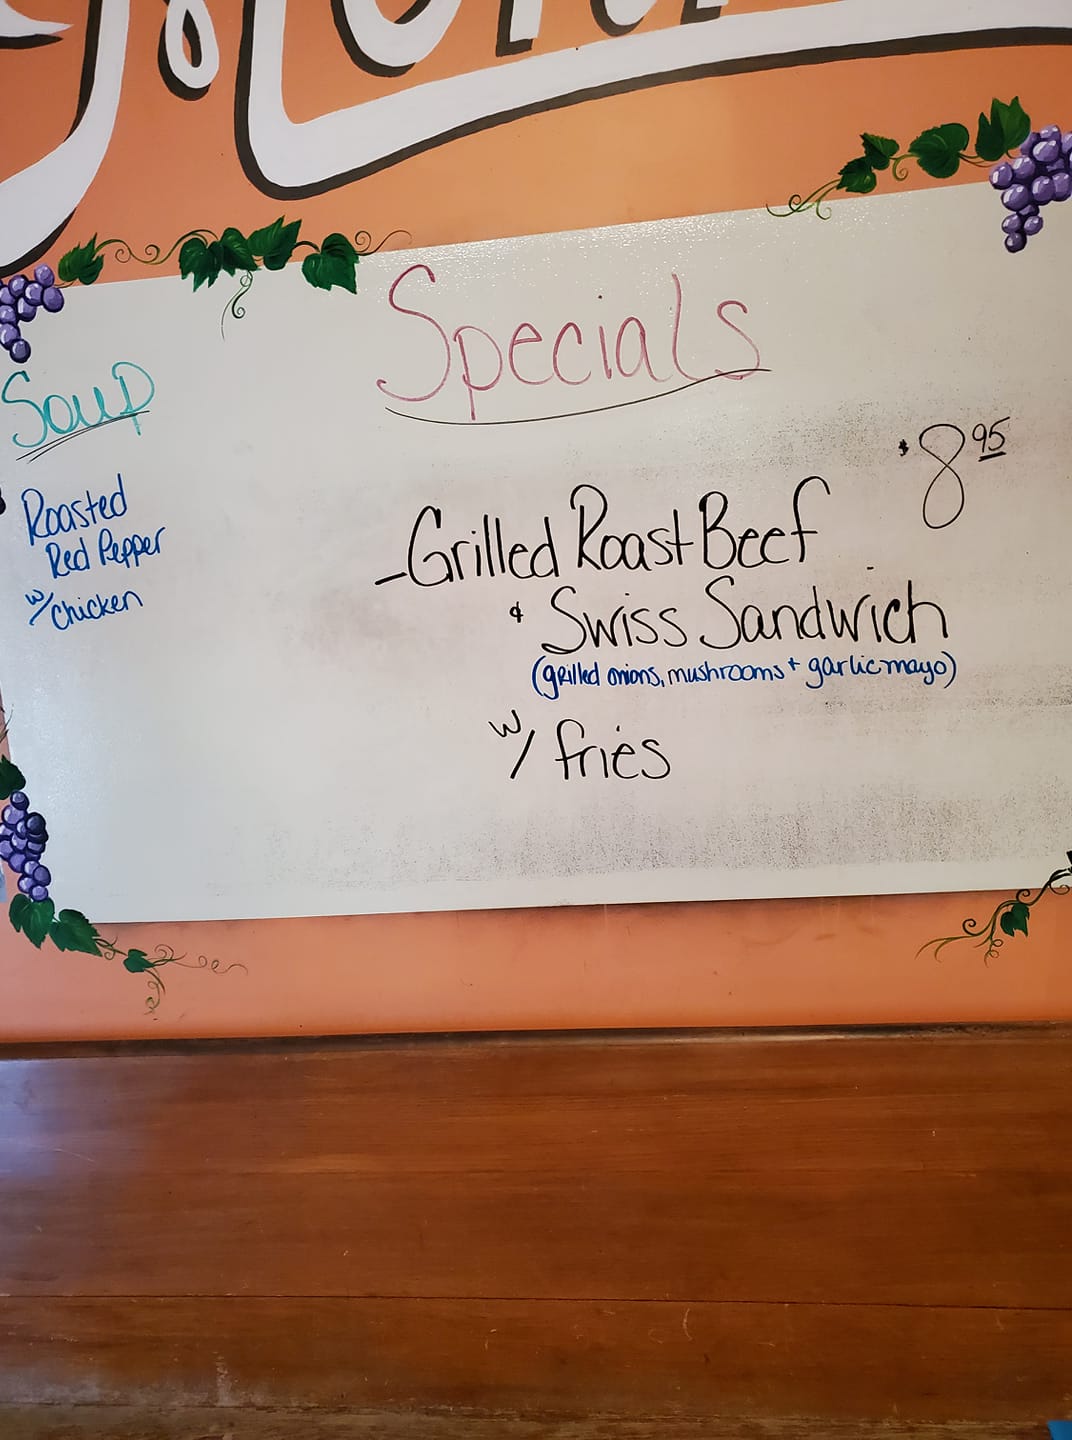 Specials
Soup
$8.95
Roasted
Red Pepper
w/ chicken
-Grilled Roast Beef
& Swiss Sandwich
(grilled onions, mushrooms + garlic mayo)
w/ fries